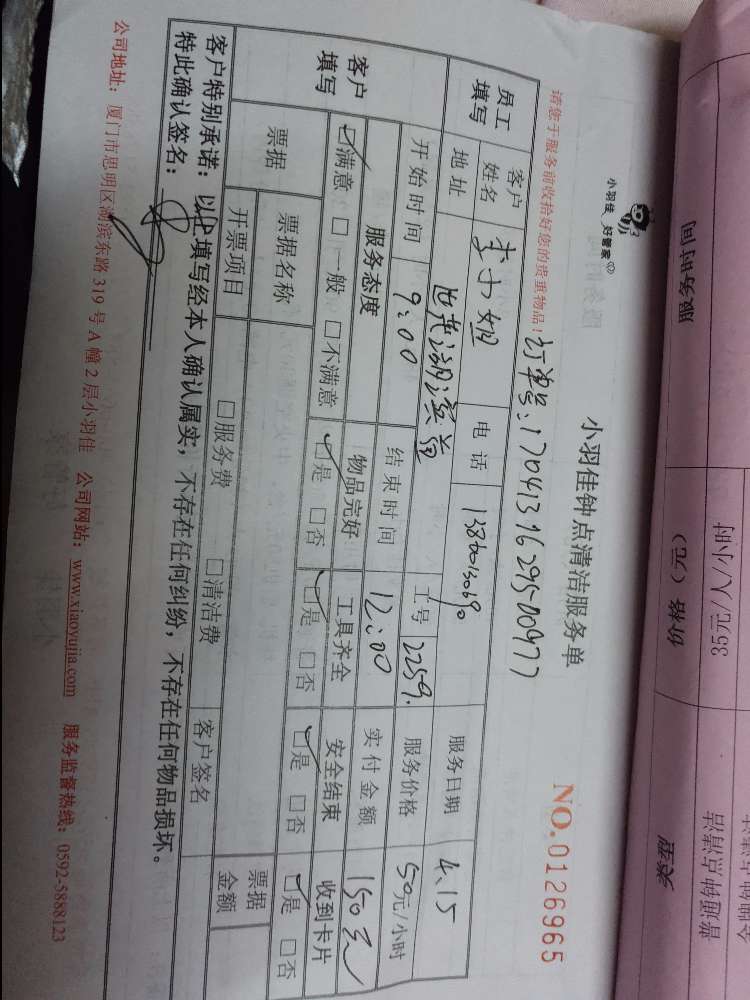 小羽佳 好管家
小羽佳钟点清洁服务单
NO.0126965
请您于服务前收拾好您的贵重物品！
订单号：17041316295700977
员工填写
客户姓名
李小姐
电话
服务日期
4.15
地址
工号
2259
服务价格
50元/小时
客户填写
开始时间
9:00
结束时间
12:00
实付金额
150元
服务态度
物品完好
工具齐全
安全结束
收到卡片
☑满意 □一般 □不满意
☑是 □否
☑是 □否
☑是 □否
☑是 □否
票据
票据名称
票据金额
开票项目
□服务费 □清洁费
客户签名
客户特别承诺：以上填写经本人确认属实，不存在任何纠纷，不存在任何物品损坏。
特此确认签名：
公司地址：厦门市思明区湖滨东路 319 号 A 幢 2 层小羽佳 公司网站：www.xiaoyujia.com 服务监督热线：0592-5888123
服务时间
价格（元）
类型
35元/人/小时
普通钟点清洁